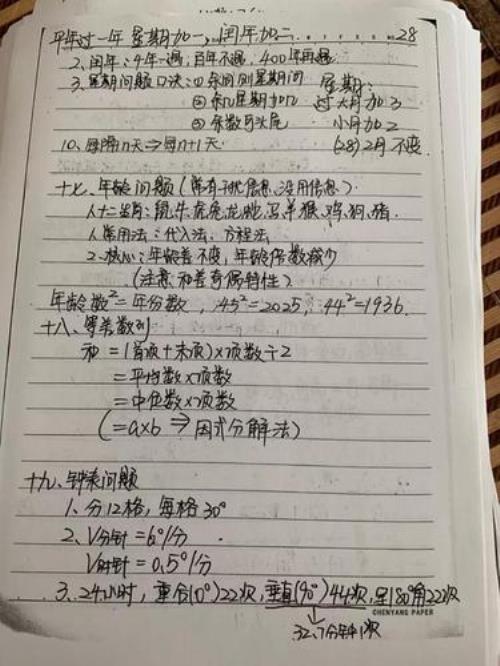 平年过一年星期加一，闰年加二 28
2、闰年：4年一遇，百年不遇，400年再遇
3、星期问题口诀：① 余同则星期同 星期：
② 余几星期加几 过大月加3
③ 余数可头尾 小月加2
10、每隔n天⇒每n+1天 (28)2月 不变
十七、年龄问题（常有干扰信息、没用信息）
人十二生肖：鼠、牛、虎、兔、龙、蛇、马、羊、猴、鸡、狗、猪.
1、常用法：代入法、方程法
2、核心：年龄差不变，年龄倍数减少
（注意和差奇偶特性）
年龄数²=年份数，45²=2025，44²=1936.
十八、等差数列
和 =（首项+末项）×项数÷2
=平均数×项数
=中位数×项数
(=a×b ⇒ 因式分解法)
十九、钟表问题
1、分12格，每格30°
2、V分针=6°/分
V时针=0.5°/分
3、24小时，重合(0°)22次，垂直(90°)44次，呈180°角22次
CHENYANG PAPER
32.7分钟1次